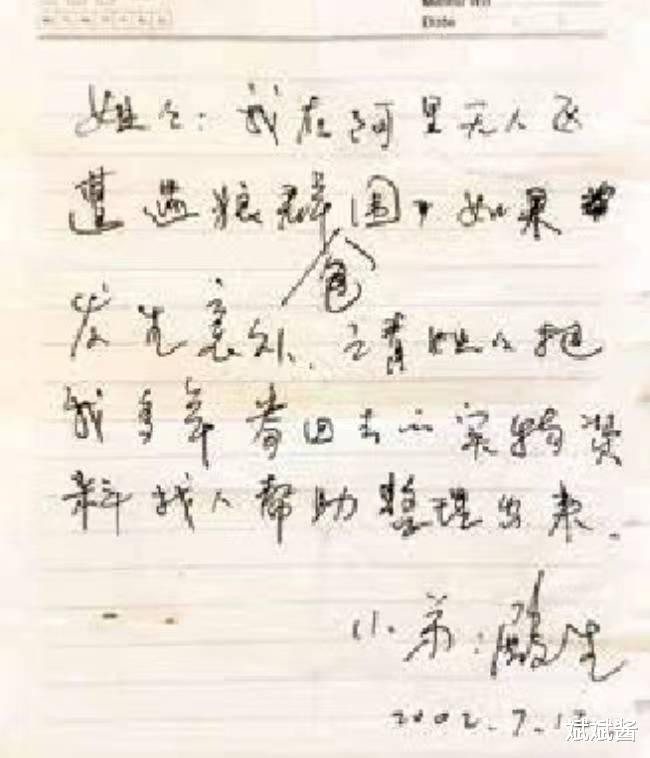 Date
姐姐:我在阿里无人区
遭遇狼群围,如果
包
发生意外,请姐姐把
我多年寄回去的实物资
料找人帮助整理出来.
小弟:
2002.7.12
斌斌酱